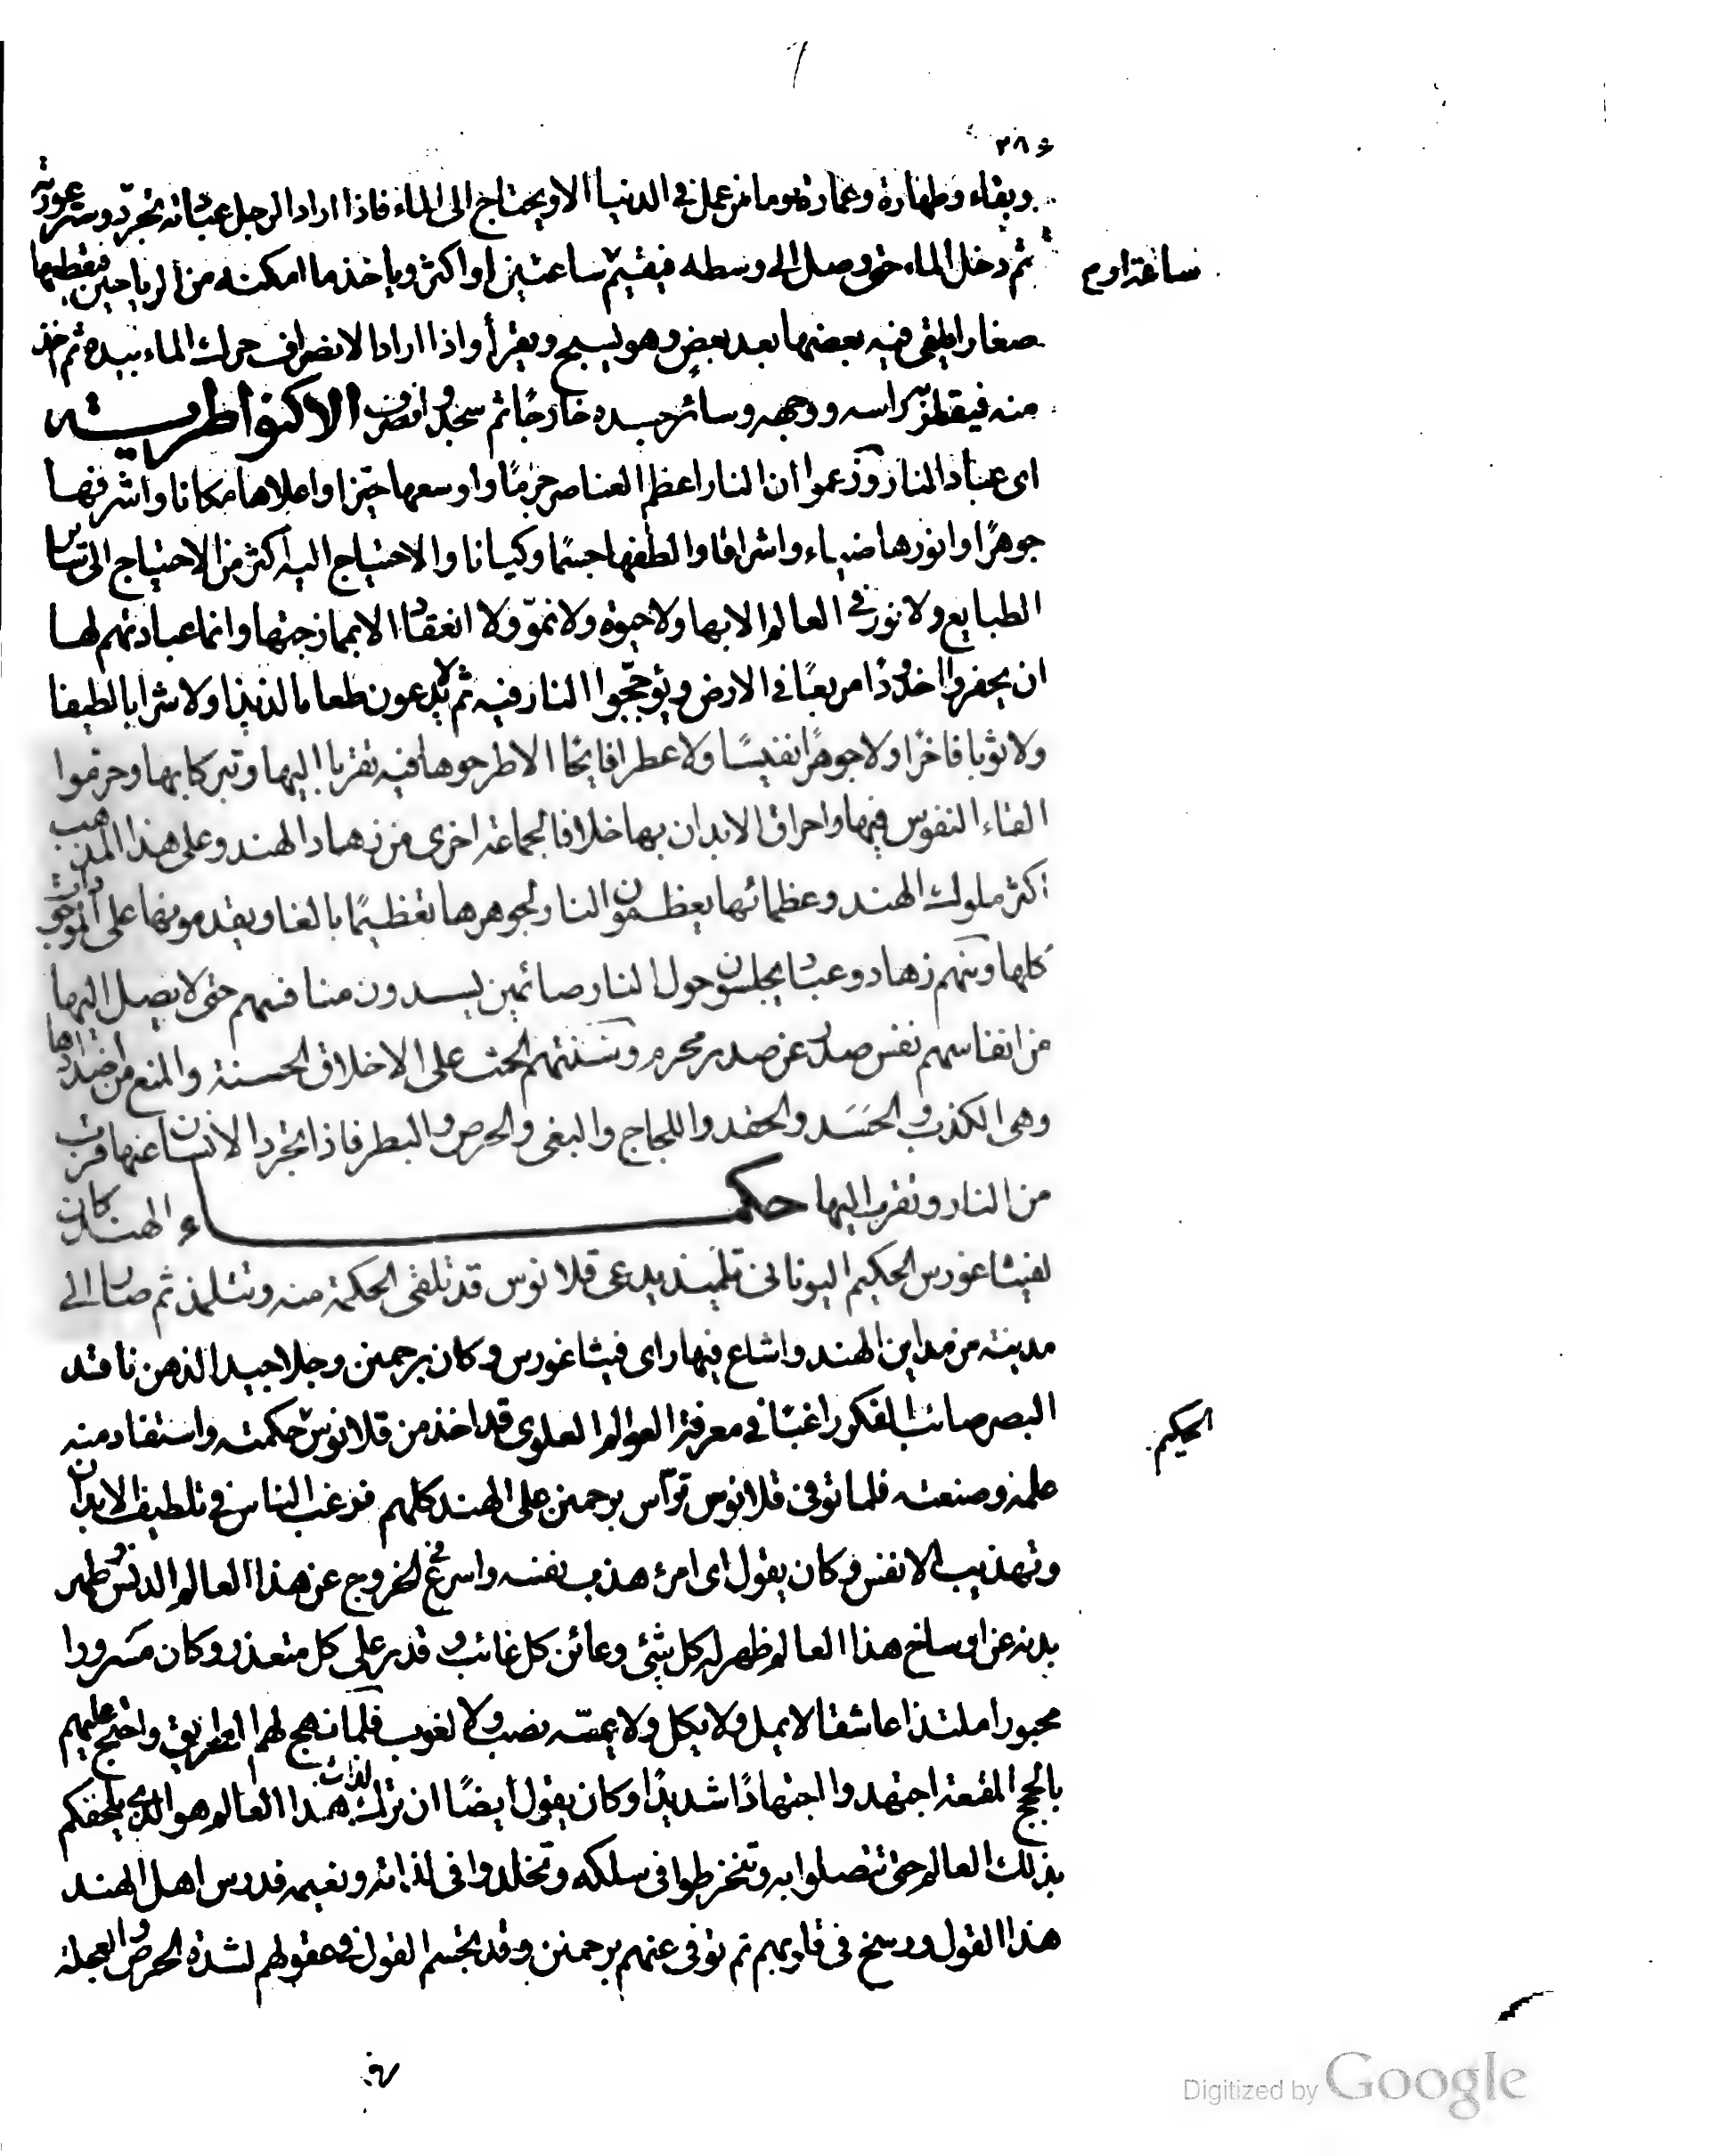 ٢٨٤
وبقاء وطهارة وعمارة وما من عمل في الدنيا الا ويحتاج الى الماء فاذا اراد الرجل عبادته تجرد وستر عورته
ثم دخل الماء حتى وصل الى وسطه فيقيم ساعتين او اكثر وياخذ ما امكنه من الرياحين فيقطعها
ساعة او
صغارا يلقى فيه بعضها بعد بعض وهو يسبح ويقرأ واذا اراد الانصراف حرك الماء بيده ثم اخذ
منه فيقطر راسه ووجهه وسائر جسده خارجًا ثم سجد وانصرف الاكنواطرية
اى عباد النار زعموا ان النار اعظم العناصر جرمًا واوسعها حيزا واعلاها مكانا واشرفها
جوهرًا وانورها ضياء واشراقا والطفها جسمًا وكيانا والاحتياج اليه اكثر من الاحتياج الى سائر
الطبايع ولا نور في العالم الا بها ولا حيوة ولا نمو ولا انعقاد الا بممازجتها وانما عبادتهم لها
ان يحفروا اخدودًا مربعًا في الارض ويؤججوا النار فيه ثم لا يدعون طعاما لذيذا ولا شرابا لطيفا
ولا ثوبا فاخرًا ولا جوهرًا نفيسًا ولا عطرا فايحًا الا طرحوها فيه تقربا اليها وتبركا بها وحرموا
القاء النفوس فيها واحراق الابدان بها خلافا لجماعة اخرى من زهاد الهند وعلى هذا المذهب
اكثر ملوك الهند وعظمائها يعظمون النار لجوهرها تعظيمًا بالغا ويقدمونها على الموجودات
كلها ومنهم زهاد وعباد يجلسون حول النار صائمين يسدون منافسهم حتى لا يصل اليها
من انفاسهم نفس صدر عن صدر محرم وسنتهم الحث على الاخلاق الحسنة والمنع من اضدادها
وهى الكذب والحسد والحقد واللجاج والبغى والحرص والبطر فاذا تجرد الانسان عنها قرب
من النار وتقرب اليها حكماء الهند كان
لفيثاغورس الحكيم اليونانى تلميذ يدعى قلانوس قد تلقى الحكمة منه وتتلمذ ثم صار الى
مدينة من مداين الهند واشاع فيها راى فيثاغورس وكان برحمنن رجلا جيد الذهن ناقد
البصر صائب الفكر راغبًا في معرفة العوالم العلوى قد اخذ من قلانوس حكمته واستفاد منه
الحكيم
علمه وصنعته فلما توفى قلانوس ترأس برحمنن على الهند كلهم فرغب الناس في تلطيف الابدان
وتهذيب الانفس وكان يقول اى امرئ هذب نفسه واسرع في الخروج عن هذا العالم الدنس وطهر
بدنه عن اوساخ هذا العالم ظهر له كل شئ وعائن كل غائب وقدر على كل متعذر وكان مسرورا
محبورا ملتذا عاشقا لا يمل ولا يكل ولا يمسه نصب ولا لغوب فلما نهج لهم الطريق واحتج عليهم
بالحجج المقنعة اجتهدوا اجتهادًا شديدًا وكان يقول ايضًا ان ترك لذات هذا العالم هو الذى يلحقكم
بذلك العالم حتى تتصلوا به وتنخرطوا فى سلكه وتخلدوا فى لذاته ونعيمه فدرس اهل الهند
هذا القول ورسخ فى قلوبهم ثم توفى عنهم برحمنن وقد تجسم القول في عقولهم لشدة الحرص والعجلة
Digitized by Google